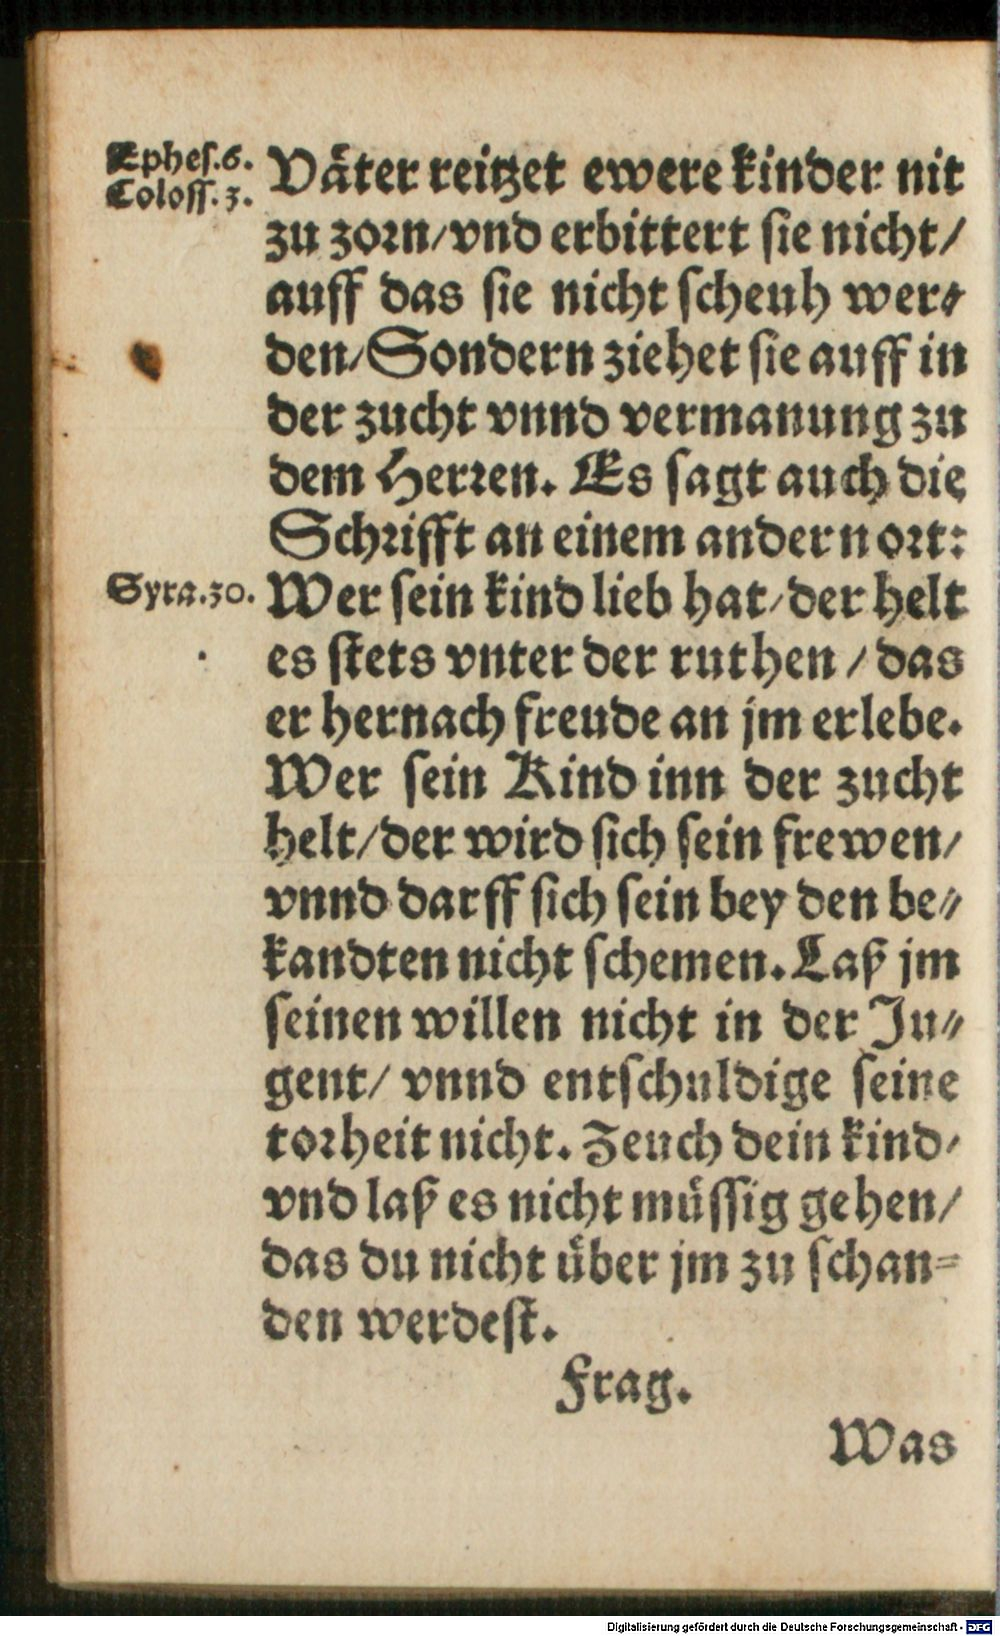 Ephes.6.
Coloss.3.
Väter reitzet ewere kinder nit
zu zorn/vnd erbittert sie nicht/
auff das sie nicht scheuh wer⸗
den/Sondern ziehet sie auff in
der zucht vnnd vermanung zu
dem Herren. Es sagt auch die
Schrifft an einem andern ort:
Syra.30.
Wer sein kind lieb hat/der helt
es stets vnter der ruthen/das
er hernach freude an jm erlebe.
Wer sein Kind inn der zucht
helt/der wird sich sein frewen/
vnnd darff sich sein bey den be⸗
kandten nicht schemen. Laß jm
seinen willen nicht in der Ju⸗
gent/ vnnd entschuldige seine
torheit nicht. Zeuch dein kind/
vnd laß es nicht müssig gehen/
das du nicht über jm zu schan⸗
den werdest.
Frag.
Was
Digitalisierung gefördert durch die Deutsche Forschungsgemeinschaft - DFG